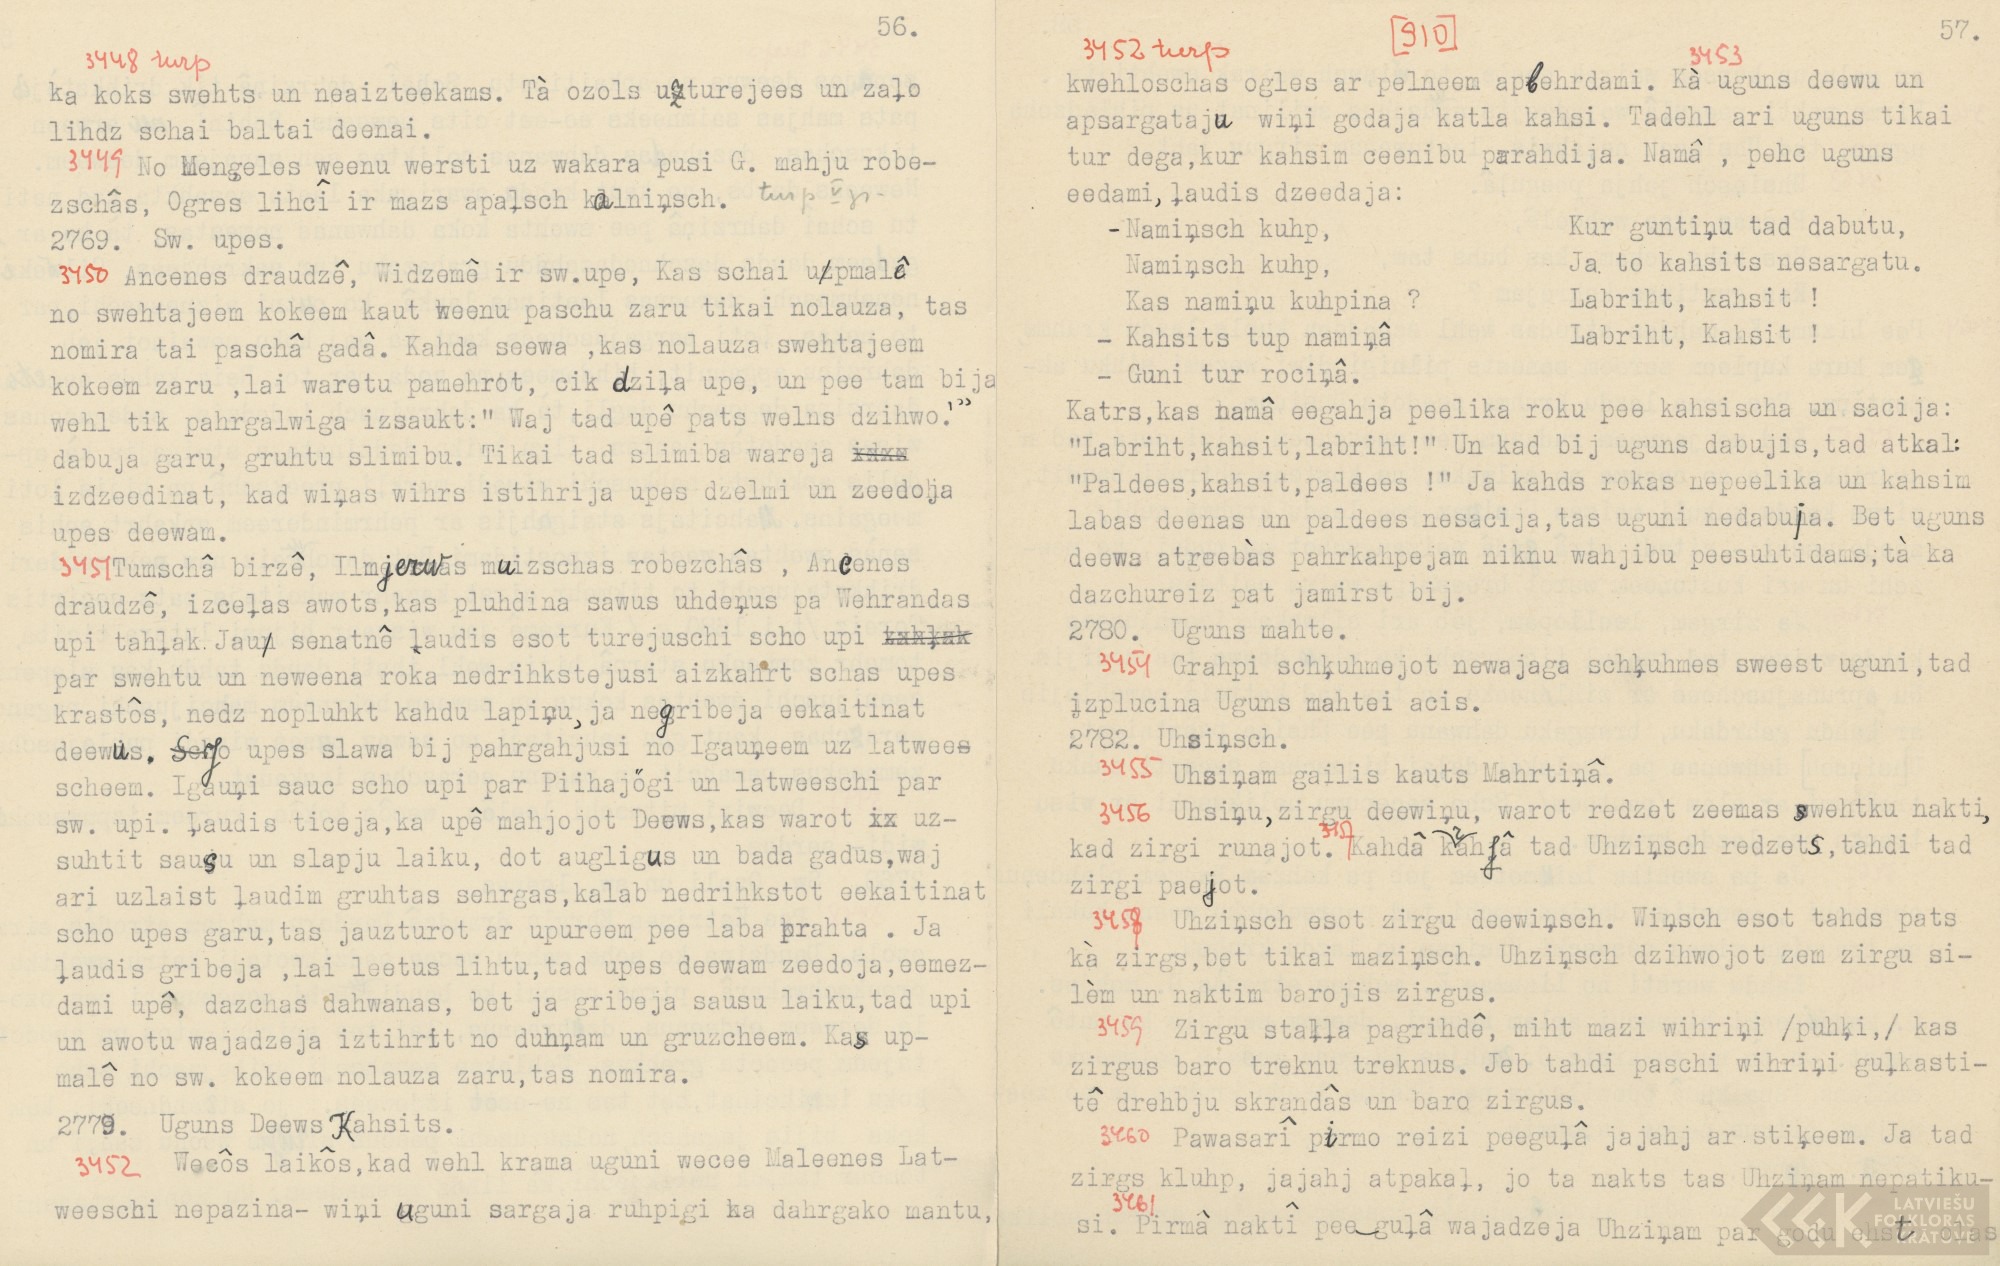 56.
3448 turp
ka koks swehts un neaizteekams. Tà ozols uzturejees un zaļo
lihdz schai baltai deenai.
3449 No Mengeles weenu wersti uz wakara pusi G. mahju robe-
zschâs, Ogres lihcî ir mazs apaļsch kalniņsch. turp
2769. Sw. upes.
3450 Ancenes draudzê, Widzemê ir sw.upe, Kas schai upmalê
no swehtajeem kokeem kaut weenu paschu zaru tikai nolauza, tas
nomira tai paschâ gadâ. Kahda seewa ,kas nolauza swehtajeem
kokeem zaru ,lai waretu pamehrot, cik dziļa upe, un pee tam bija
wehl tik pahrgalwiga izsaukt:" Waj tad upê pats welns dzihwo!"
dabuja garu, gruhtu slimibu. Tikai tad slimiba wareja
izdzeedinat, kad wiņas wihrs istihrija upes dzelmi un zeedoja
upes deewam.
3451 Tumschâ birzê, Ilmjerwas muizschas robezchâs , Ancenes
draudzê, izceļas awots,kas pluhdina sawus uhdeņus pa Wehrandas
upi tahļak. Jau senatnê ļaudis esot turejuschi scho upi tahļak
par swehtu un neweena roka nedrihkstejusi aizkahrt schas upes
krastôs, nedz nopluhkt kahdu lapiņu, ja negribeja eekaitinat
deewus. Scho upes slawa bij pahrgahjusi no Igauņeem uz latwees
scheem. Igauņi sauc scho upi par Piihajögi un latweeschi par
sw. upi. Ļaudis ticeja,ka upê mahjojot Deews,kas warot ix uz-
suhtit sausu un slapju laiku, dot augligus un bada gadus,waj
ari uzlaist ļaudim gruhtas sehrgas,kalab nedrihkstot eekaitinat
scho upes garu,tas jauzturot ar upureem pee laba prahta . Ja
ļaudis gribeja ,lai leetus lihtu,tad upes deewam zeedoja,eemez-
dami upê, dazchas dahwanas, bet ja gribeja sausu laiku,tad upi
un awotu wajadzeja iztihrit no duhņam un gruzcheem. Kas up-
malê no sw. kokeem nolauza zaru,tas nomira.
2779. Uguns Deews Kahsits.
3452 Wecôs laikôs,kad wehl krama uguni wecee Maleenes Lat-
weeschi nepazina- wiņi uguni sargaja ruhpigi ka dahrgako mantu,
[910]
57.
3452 turp
3453
kwehloschas ogles ar pelneem apbehrdami. Kà uguns deewu un
apsargataju wiņi godaja katla kahsi. Tadehl ari uguns tikai
tur dega,kur kahsim ceenibu parahdija. Namâ , pehc uguns
eedami, ļaudis dzeedaja:
-Namiņsch kuhp, Kur guntiņu tad dabutu,
Namiņsch kuhp, Ja to kahsits nesargatu.
Kas namiņu kuhpina ? Labriht, kahsit !
- Kahsits tup namiņâ Labriht, Kahsit !
- Guni tur rociņâ.
Katrs,kas namâ eegahja peelika roku pee kahsischa un sacija:
"Labriht,kahsit,labriht!" Un kad bij uguns dabujis,tad atkal:
"Paldees,kahsit,paldees !" Ja kahds rokas nepeelika un kahsim
labas deenas un paldees nesacija,tas uguni nedabuja. Bet uguns
deews atreebàs pahrkahpejam niknu wahjibu peesuhtidams;tà ka
dazchureiz pat jamirst bij.
2780. Uguns mahte.
3454 Grahpi schķuhmejot newajaga schķuhmes sweest uguni,tad
izplucina Uguns mahtei acis.
2782. Uhsiņsch.
3455 Uhsiņam gailis kauts Mahrtiņâ.
3456 Uhsiņu, zirgu deewiņu, warot redzet zeemas swehtku nakti,
kad zirgi runajot. 3457 Kahdâ kahjâ tad Uhziņsch redzets,tahdi tad
zirgi paejot.
3458 Uhziņsch esot zirgu deewiņsch. Wiņsch esot tahds pats
kà zirgs,bet tikai maziņsch. Uhziņsch dzihwojot zem zirgu si-
lèm un naktim barojis zirgus.
3459 Zirgu staļļa pagrihdê, miht mazi wihriņi /puhķi,/ kas
zirgus baro treknu treknus. Jeb tahdi paschi wihriņi guļkasti-
tê drehbju skrandâs un baro zirgus.
3460 Pawasarî pirmo reizi peeguļâ jajahj ar stiķeem. Ja tad
zirgs kluhp, jajahj atpakaļ, jo ta nakts tas Uhziņam nepatiku-
si. 3461 Pirmâ naktî pee guļâ wajadzeja Uhziņam par godu ehst olas
LATVIEŠU
FOLKLORAS
KRĀTUVE